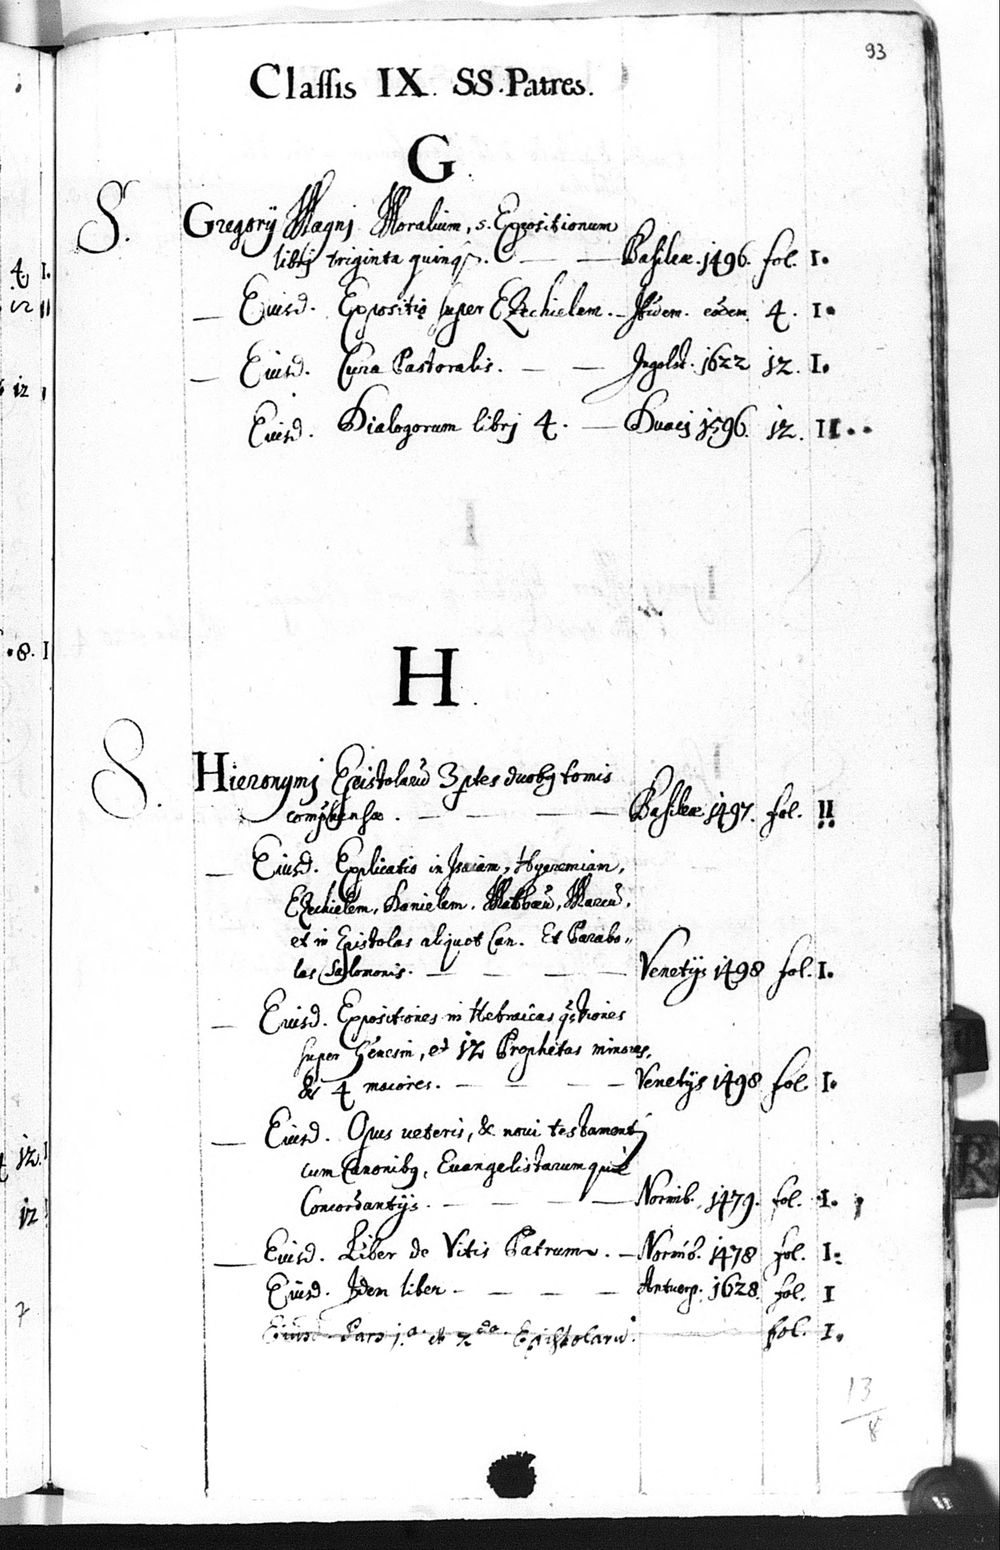 93
Classis IX. SS. Patres.
G.
S. Gregorij Magnj Moralium, s. Expositionum
librj triginta quinqz. — — Basileæ. 1496. fol. I.
— Eiusd. Expositio super EZechielem. — Ibidem. eodem. 4. I.
— Eiusd. Cura Pastoralis. — — Ingolst. 1622 12. I.
Eiusd. Dialogorum librj 4. — Duacj 1596. 12. II..
H.
S. Hieronymj Epistolarū 3 ptes duobq tomis
comp̄hensæ. — — — — Basileæ. 1497. fol. II
— Eiusd. Explicatio in Isaiam, Hyeremiam,
EZechielem, Danielem. Mathæū, Marcū,
et in Epistolas aliquot Can. Et Parabo„
las Salomonis. — — — — Venetijs 1498 fol. I.
— Eiusd. Expositiones in Hebraicas q̄stiones
super Genesin, et 12 Prophetas minores,
& 4 maiores. — — — — Venetijs 1498 fol. I.
— Eiusd. Opus veteris, & noui testamentj
cum Canonibq, Euangelistarumque
Concordantijs. — — — — Norimb. 1479. fol. I.
— Eiusd. Liber de Vitis Patrum. — Norimb. 1478 fol. I:
Eiusd. Idem liber — — — — Antuerp. 1628. fol. I
Eiusd. Pars 1.a et 2da Epistolarū. fol. I.
13
8